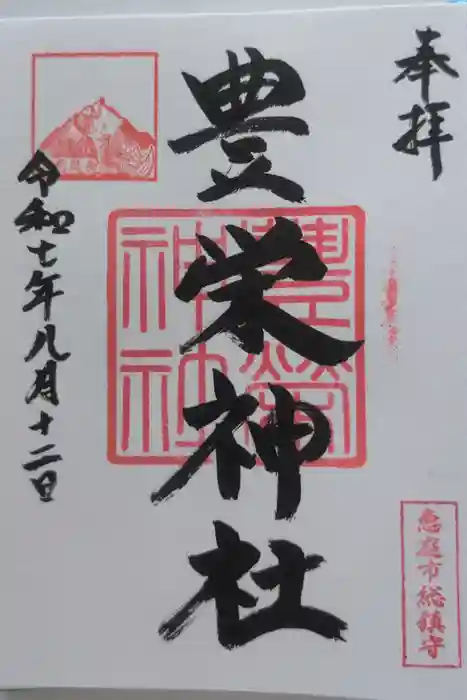 奉拝
恵庭市総鎮守
豊栄神社
豊栄神社
令和七年八月十二日